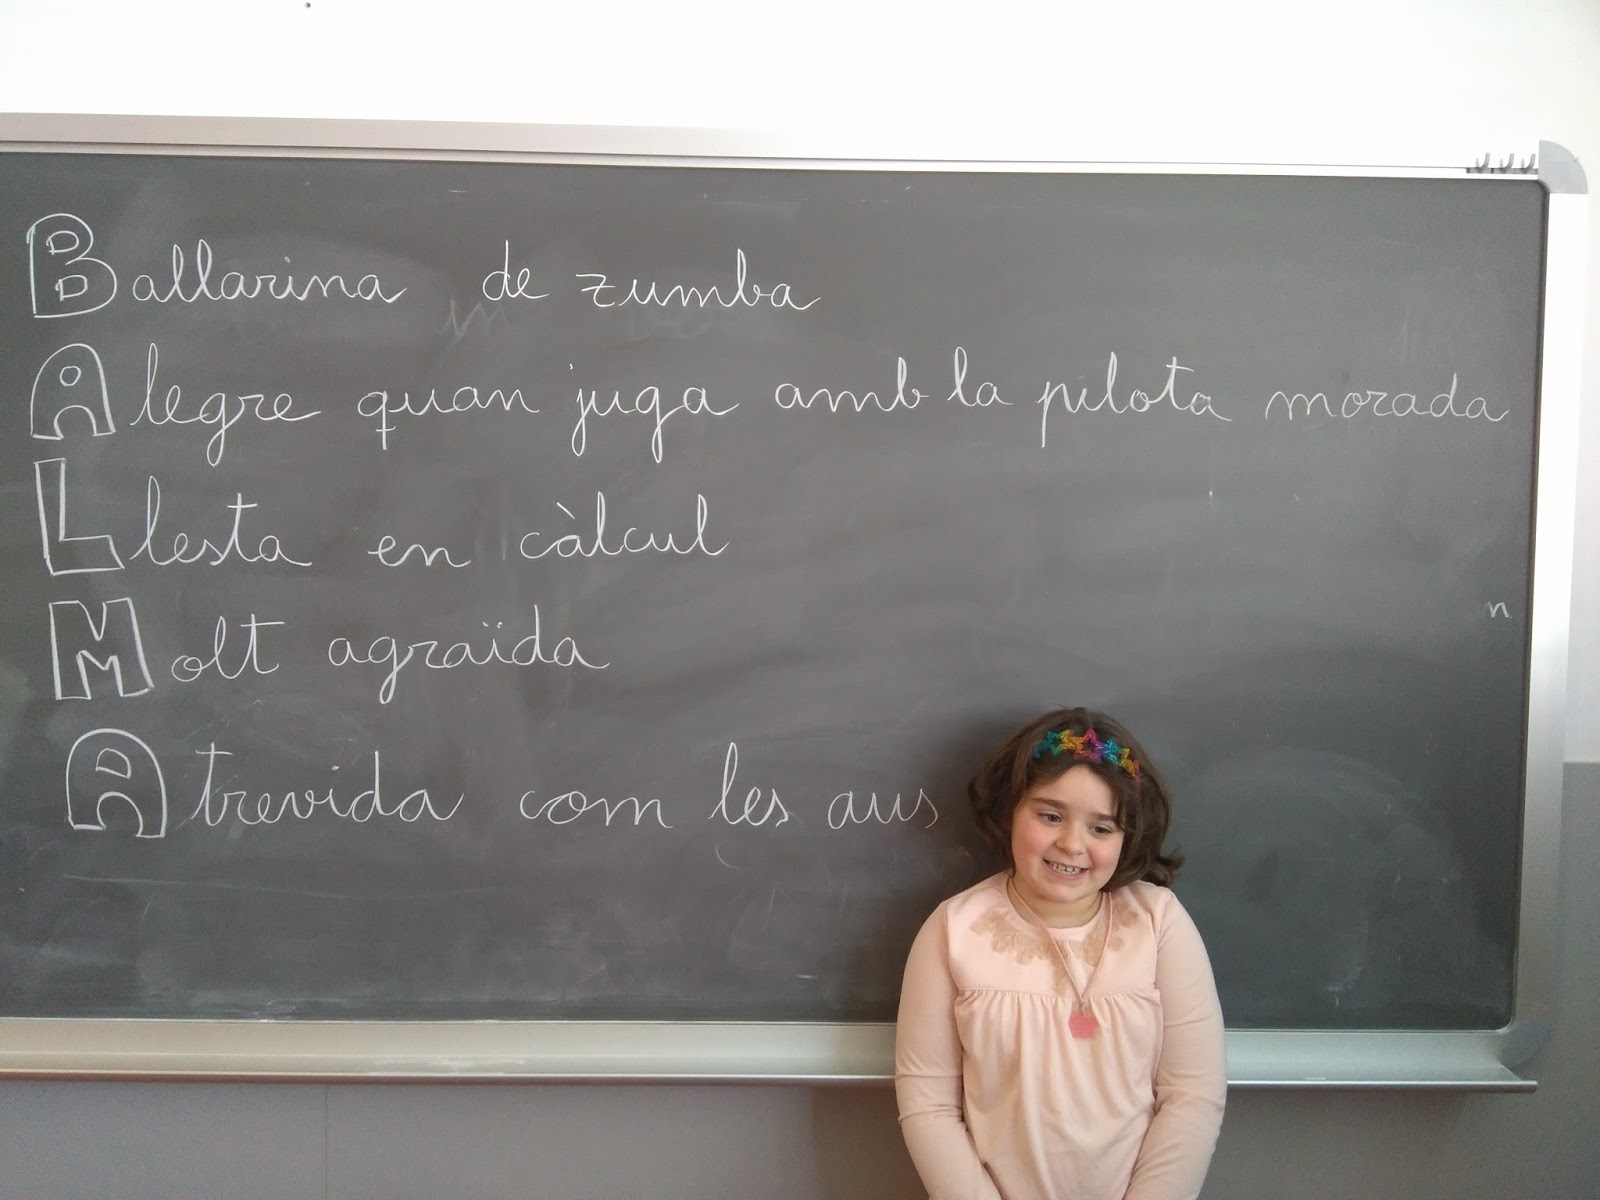 Ballarina de zumba
Alegre quan juga amb la pilota morada
Llesta en càlcul
n
Molt agraïda
Atrevida com les aus